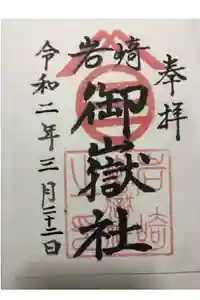 奉拝
岩崎
御嶽社
令和二年三月二十二日